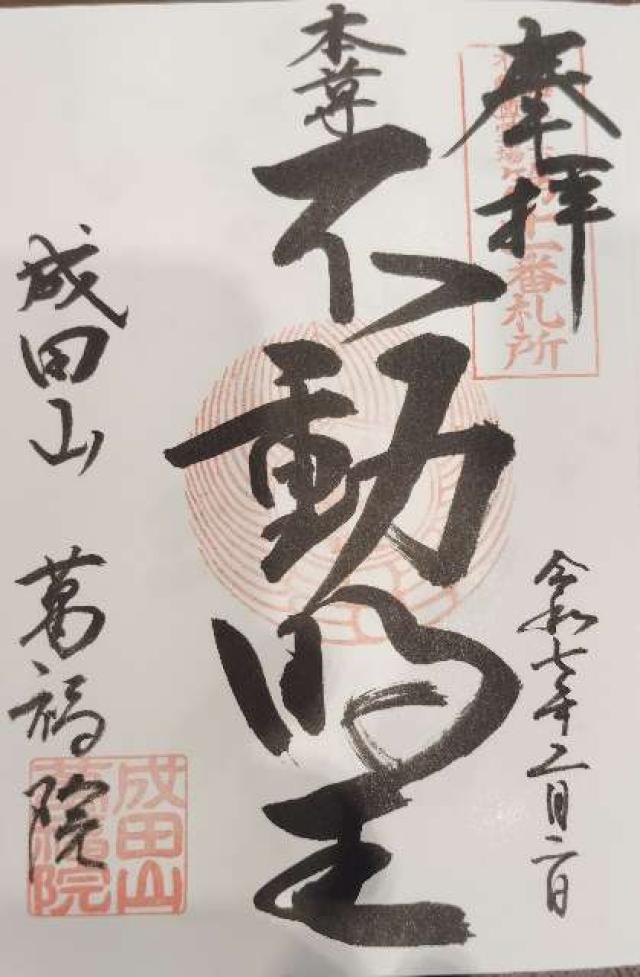 奉拝
十一番札所
令和七年二月二日
本尊
不動明王
成田山 萬福院
成田山
萬福院